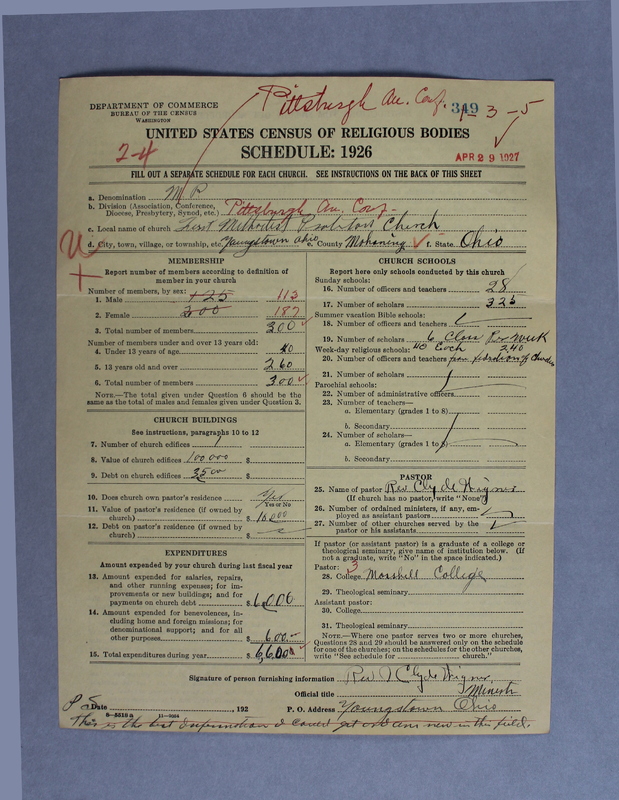 Pittsburgh An. Conf. 349 1-3-5
DEPARTMENT OF COMMERCE
BUREAU OF THE CENSUS
WASHINGTON
UNITED STATES CENSUS OF RELIGIOUS BODIES
2-4
SCHEDULE: 1926
APR 29 1927
FILL OUT A SEPARATE SCHEDULE FOR EACH CHURCH. SEE INSTRUCTIONS ON THE BACK OF THIS SHEET
a. Denomination M P
b. Division (Association, Conference, Diocese, Presbytery, Synod, etc.) Pittsburgh An. Conf.
c. Local name of church First Methodist Church
d. City, town, village, or township, etc. Youngstown Ohio e. County Mahoning f. State Ohio
MEMBERSHIP
Report number of members according to definition of
member in your church
Number of members, by sex:
1. Male 125 113
2. Female 200 187
3. Total number of members 300
Number of members under and over 13 years old:
4. Under 13 years of age 40
5. 13 years old and over 260
6. Total number of members 300
NOTE.—The total given under Question 6 should be the
same as the total of males and females given under Question 3.
CHURCH BUILDINGS
See instructions, paragraphs 10 to 12
7. Number of church edifices 1
8. Value of church edifices 100,000 $
9. Debt on church edifices 3500 $
10. Does church own pastor's residence Yes
Yes or No
11. Value of pastor's residence (if owned by
church) $
12. Debt on pastor's residence (if owned by
church) $
EXPENDITURES
Amount expended by your church during last fiscal year
13. Amount expended for salaries, repairs,
and other running expenses; for im-
provements or new building; and for
payments on church debt $ 6,000
14. Amount expended for benevolences, in-
cluding home and foreign missions; for
denominational support; and for all
other purposes $ 600.—
15. Total expenditures during year $ 6,600
CHURCH SCHOOLS
Report here only schools conducted by this church
Sunday schools:
16. Number of officers and teachers 28
17. Number of scholars 325
Summer vacation Bible schools:
18. Number of officers and teachers
19. Number of scholars 6 Class Per Week
Week-day religious schools: 40 Each 240
20. Number of officers and teachers from federation of Churches
21. Number of scholars
Parochial schools:
22. Number of administrative officers
23. Number of teachers—
a. Elementary (grades 1 to 8)
b. Secondary
24. Number of scholars—
a. Elementary (grades 1 to 8)
b. Secondary
PASTOR
25. Name of pastor Rev Clyde
(If church has no pastor, write "None")
26. Number of ordained ministers, if any, em-
ployed as assistant pastors
27. Number of other churches served by the
pastor or his assistants
If pastor (or assistant pastor) is a graduate of a college or
theological seminary, give name of institution below. (If
not a graduate, write "No" in the space indicated.)
Pastor: 3
28. College College
29. Theological seminary
Assistant pastor:
30. College
31. Theological seminary
NOTE.—Where one pastor serves two or more churches,
Questions 28 and 29 should be answered only on the schedule
for one of the churches; on the schedules for the other churches,
write "See schedule for church."
Signature of person furnishing information Rev Clyde
Official title Minister
Date , 192 P. O. Address Youngstown Ohio
8—5518 a 11—9664
P S This is the best information I could get and am new in this field.